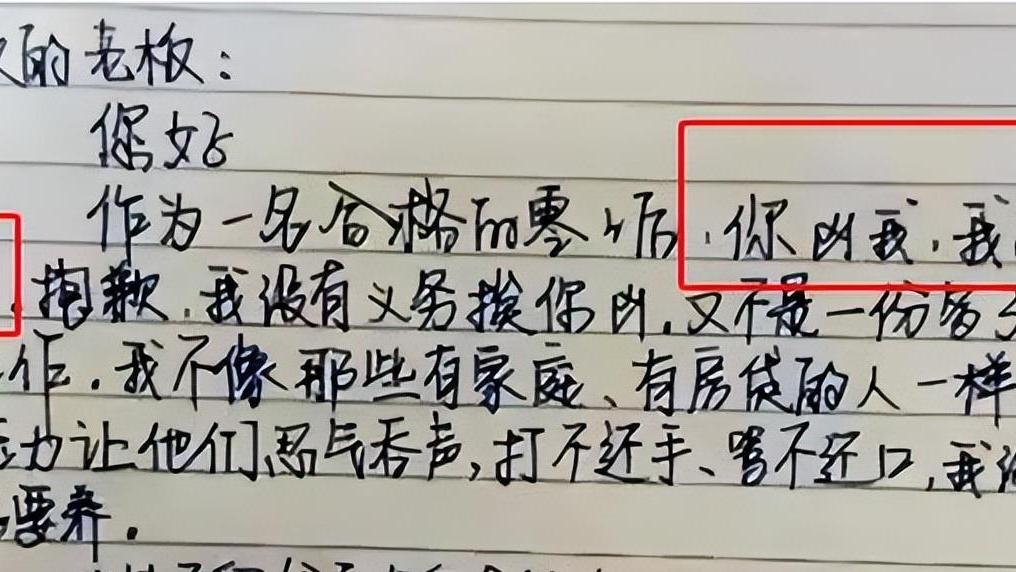 的老板：
您好
作为一名合格的零0后，你凶我，我
抱歉，我没有义务挨你凶，又不是一份多
作，我不像那些有家庭、有房贷的人一样
力让他们忍气吞声，打不还手、骂不还口，我没
要养。